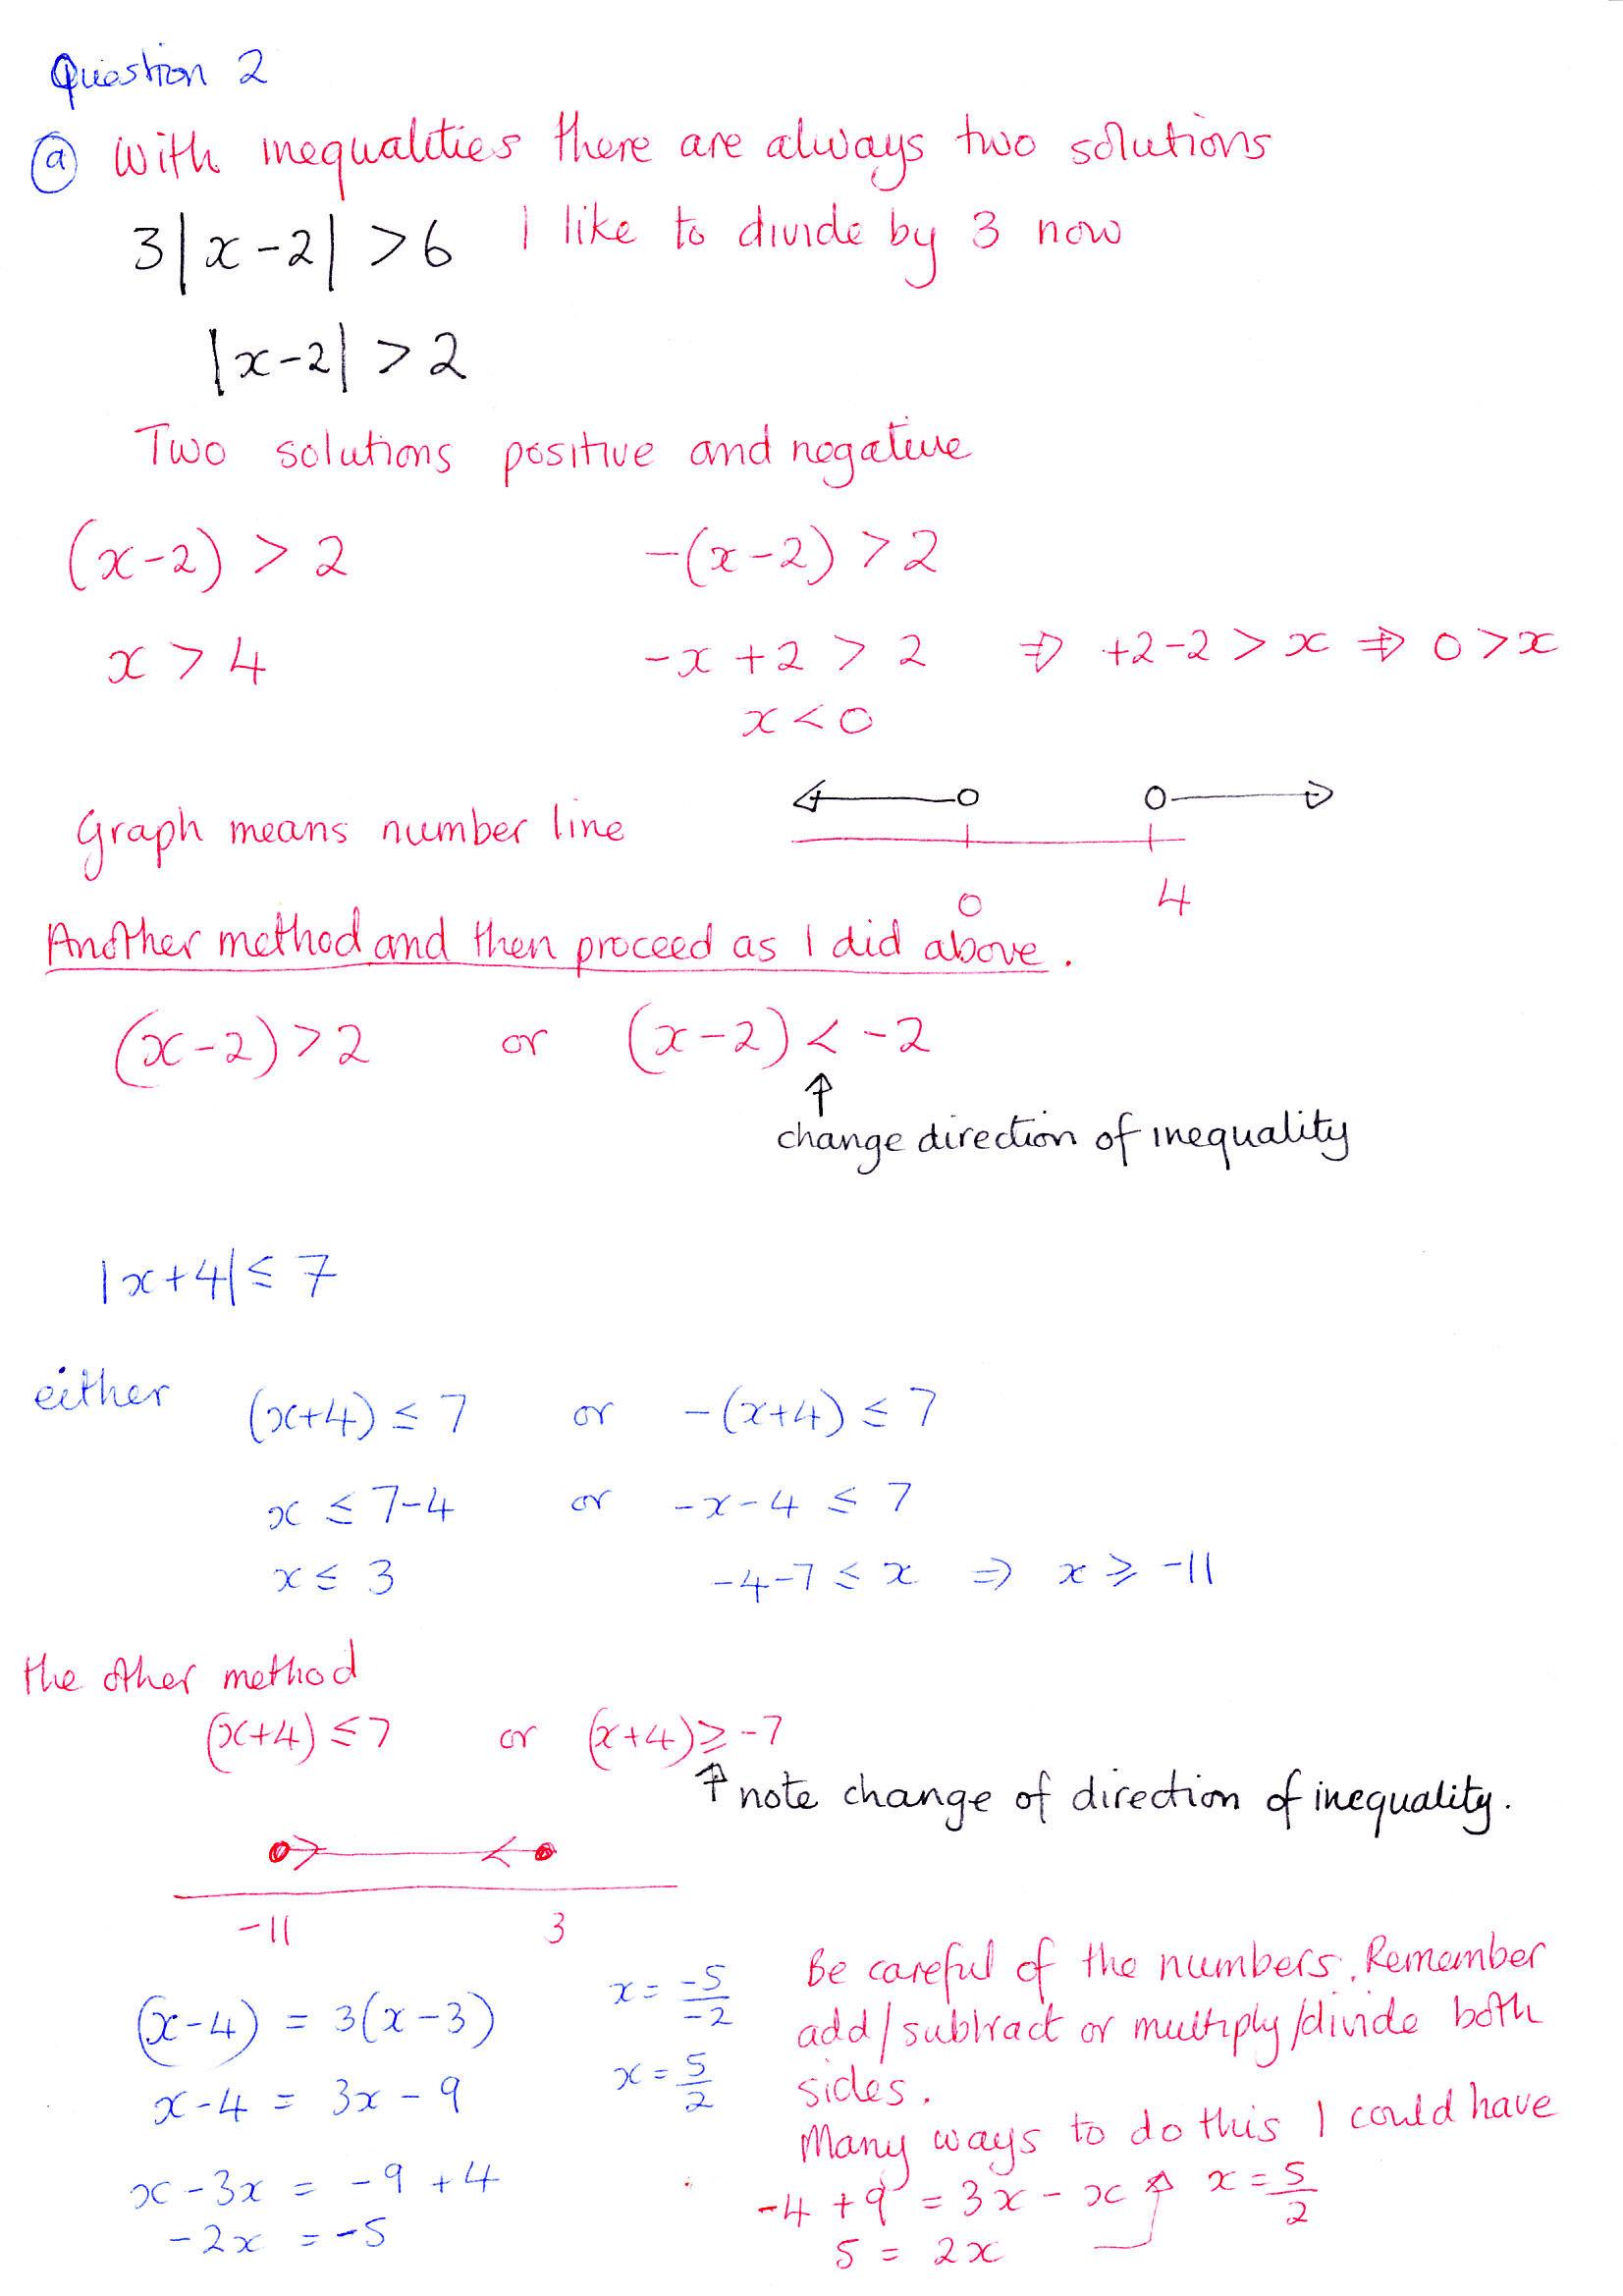 Question 2
(a) With inequalities there are always two solutions
3|x-2| >6 I like to divide by 3 now
|x-2| > 2
Two solutions positive and negative
(x-2) > 2 -(x-2) > 2
x > 4 -x + 2 > 2 ⇒ +2-2 > x ⇒ 0 > x
x < 0
Graph means number line
0 4
Another method and then proceed as I did above.
(x-2) > 2 or (x-2) < -2
↑
change direction of inequality
|x+4| ≤ 7
either (x+4) ≤ 7 or -(x+4) ≤ 7
x ≤ 7-4 or -x-4 ≤ 7
x ≤ 3 -4-7 ≤ x ⇒ x ≥ -11
the other method
(x+4) ≤ 7 or (x+4) ≥ -7
↑ note change of direction of inequality.
-11 3
(x-4) = 3(x-3)
x-4 = 3x-9
x-3x = -9+4
-2x = -5
x = -5/-2
x = 5/2
Be careful of the numbers. Remember
add/subtract or multiply/divide both
sides.
Many ways to do this I could have
-4+9 = 3x-x x = 5/2
5 = 2x